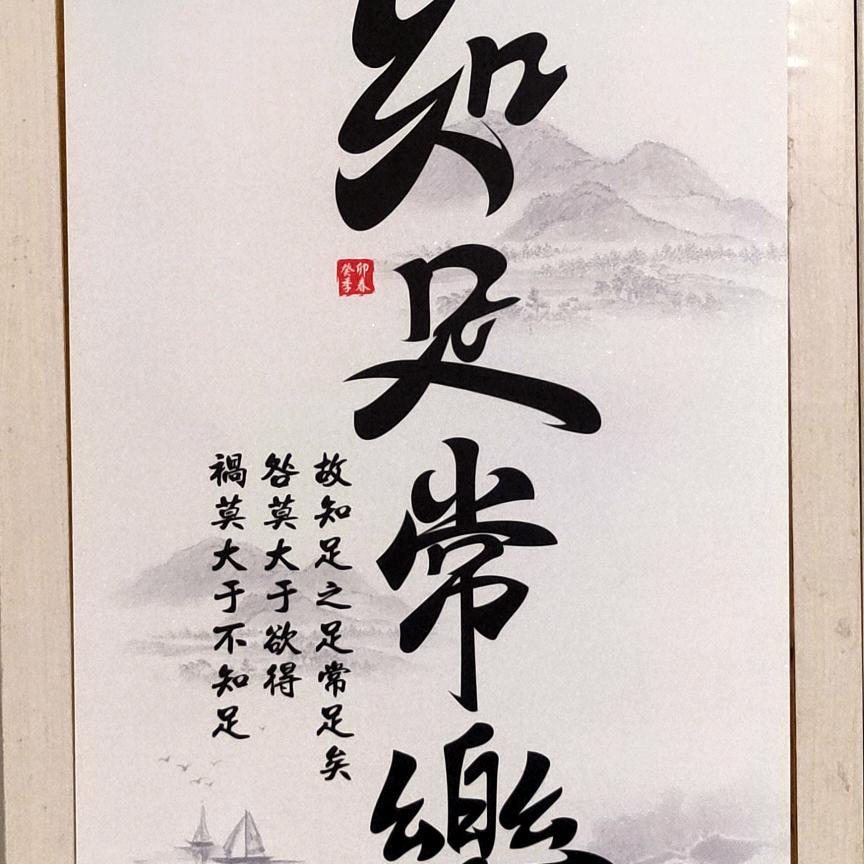 知足常樂
癸卯
季春
禍莫大于不知足
咎莫大于欲得
故知足之足常足矣